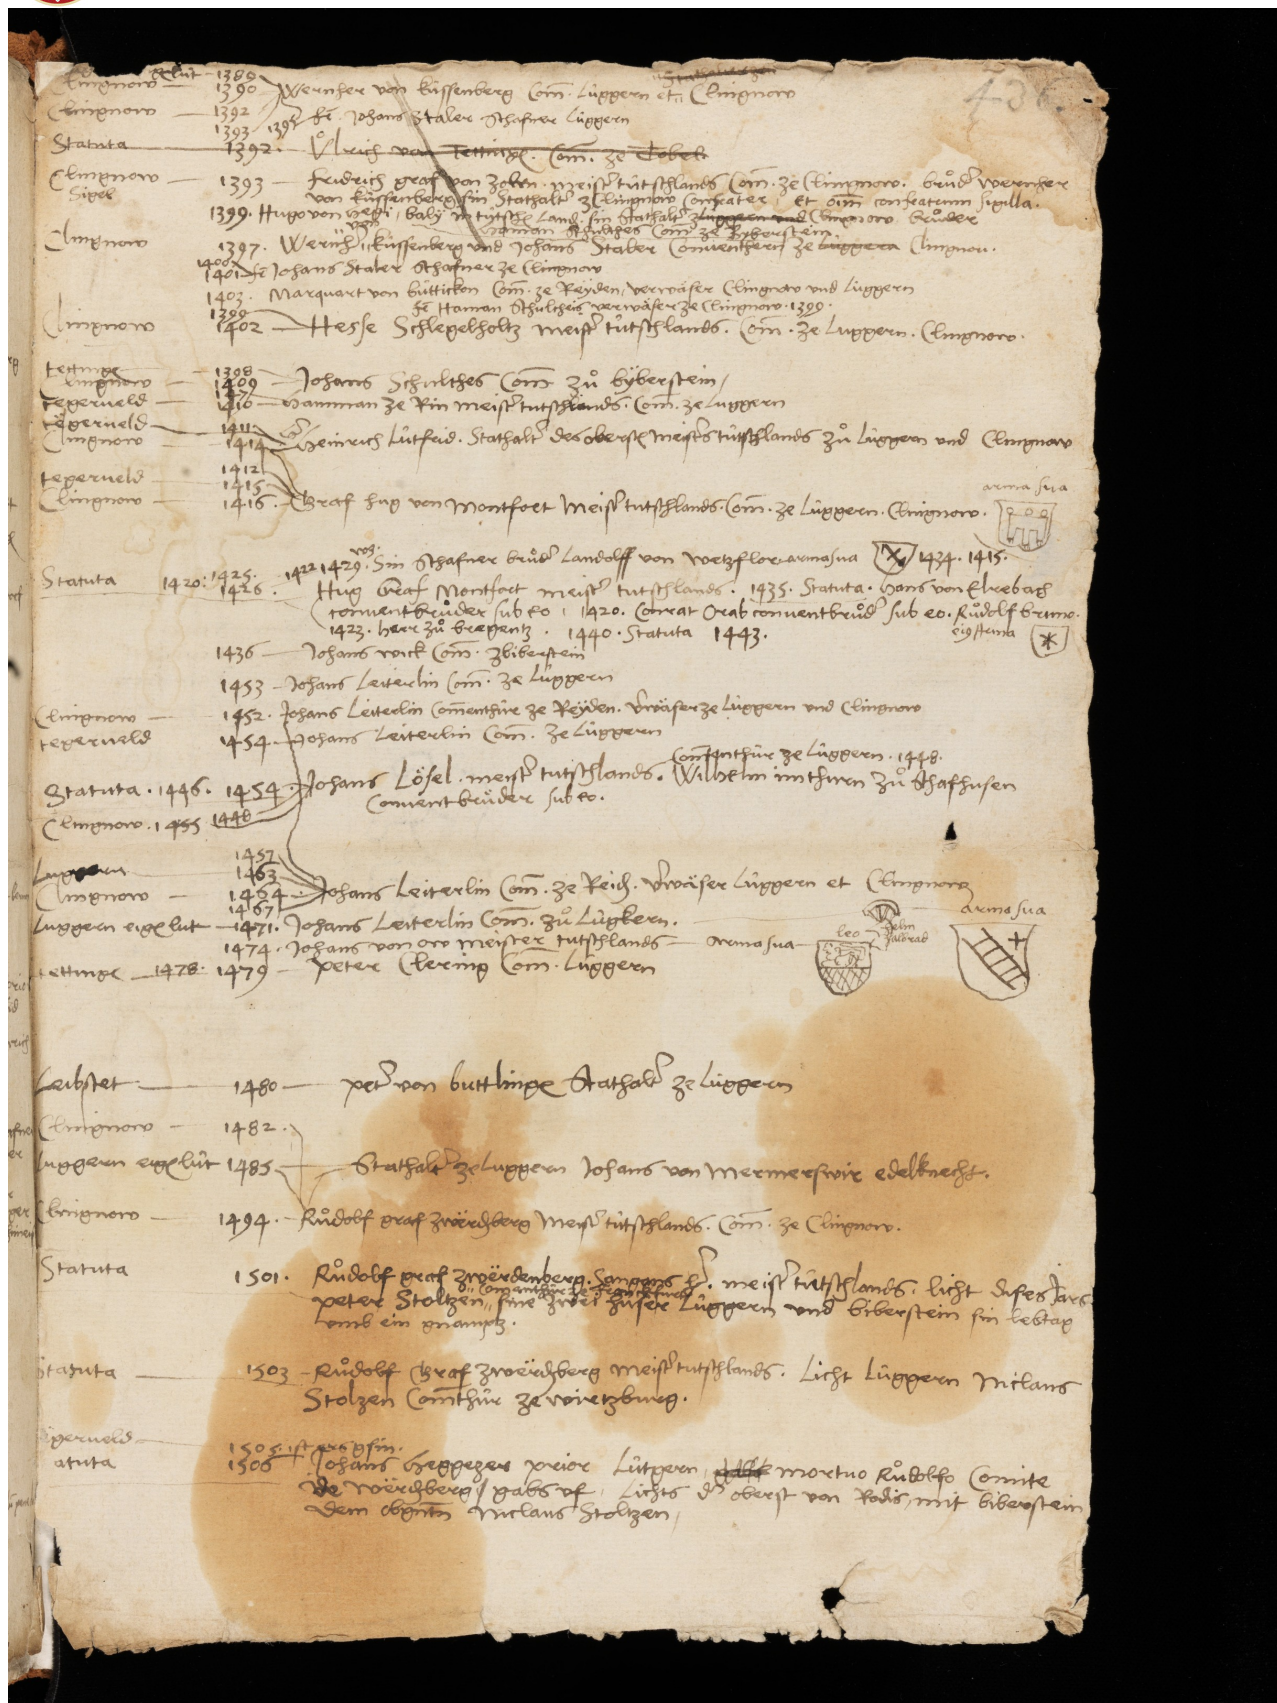 436
eigelüt 1389
Clingnow — 1390 Wernher von küssenberg Com̄. Lüggern et Clingnow
Clingnow — 1392
1393 1395 fr. Johans Staler Schafner Lüggern
Statuta 1392. Ůlrich von Tettinge. Com̄. ze Tobel
Clingnow — 1393 — fridrich graf von Zolrn. meister tütschlands Com̄. ze Clingnow. brůder wernher
Sigel von küssenberg sin Stathalter z Clingnow Confrater, et oīm confratrum sigilla.
1399. Hugo von baly in tütsche Land. sin Stathalter ze Lüggern und Clingnow brůder
haman Schulthes Com̄ ze Byberstein.
Clingnow 1397. Wernher von küssenberg und Johans Staler Conventhern ze Lüggern Clingnow.
1400
1401 fr Johans Staler Schafner ze Clingnow
1403. Marquart von büttickon Com̄. ze Reyden, verwäser Clingnow und Lüggern
1399 fr Haman Schultheis verwäser ze Clingnow. 1399.
Clingnow 1402 — Hesse Schlegelholtz meister tütschlands. Com̄. ze Luggern. Clingnow.
tettinge 1398
Clingnow — 1409 — Johans Schulthes Com̄ zů byberstein
tegerveld — 1410 — hamman ze Rin meister tutschlands. Com̄. ze Luggern
tegerveld — 1411
Clingnow — 1414 Heinrich Lütfrid. Stathalter des obersten meisters tütschlands zů Lüggern und Clingnow
1412
tegerveld — 1415
Clingnow — 1416. Graf hug von Montfort Meister tutschlands. Com̄. ze Lüggern. Clingnow. arma sua
1422 1429. Sin Schafner brůder Landolff von Wetzflor. arma sua 1434. 1415.
Statuta 1420: 1425. 1426. Hug Graf Montfort meister tutschlands. 1435. Statuta. Hans von Elrebach
conventbrůder sub eo, 1420. Conrat Orab conventbrůder sub eo. Růdolf brimo.
1423. herr zů bregentz. 1440. Statuta 1443. eius Arma
1436 — Johans wick Com̄. z biberstein
1453 — Johans Leiterlin Com̄. ze Lüggern
Clingnow — 1452. Johans Leiterlin Com̄enthür ze Reyden. Verwäser ze Lüggern und Clingnow
tegerveld 1454 — Johans Leiterlin Com̄. ze Lüggern
Commenthür ze Lüggern. 1448.
Statuta. 1446. 1454. Johans Lösel. meister tutschlands. Wilhelm im thurn zů Schafhusen
Convent brůder sub eo.
Clingnow. 1455 1448
1457
Luggern 1463
Clingnow — 1464. Johans Leiterlin Com̄. ze Reid. Verwäser Lüggern et Clingnow
1467
Luggern eige lut — 1471. Johans Leiterlin Com̄. zů Lügkern. arma sua
1474. Johans von ow meister tutschlands — Arma sua — leo helm halbrad
tettinge — 1478. 1479 — Peter Clering Com̄. Lüggern
Leibstet — 1480 — peter von buttlinge Stathalter ze Lüggern
Clingnow — 1482.
Luggern eige lüt 1485 — Stathalter ze Luggern Johans von Mermerswir edelknecht.
Clingnow — 1494. Růdolf graf z werdberg Meister tütschlands. Com̄. ze Clingnow.
Statuta 1501. Růdolf graf z werdenberg. Sangans hr. meister tütschlands. licht dises Jars
Commenthür ze Franckfurt
peter Stoltzen sine zwei hüser Lüggern und biberstein sin lebtag
umb ein gnamptz.
Statuta — 1503 — Růdolf Graf z werdberg Meister tutschlands. Licht Lüggern Niclaus
Stolzen Com̄thür ze wirtzburg.
Tegerveld — 1505
Statuta 1506 Johans Heggezer prior Lütgern, mortuo Růdolfo Comite
de Werdberg, gabs uf, Lichts der oberst von Rodis, mit biberstein
dem obgntn Niclaus Stoltzen,